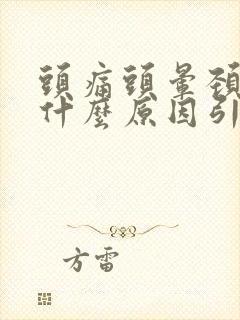 頭痛頭暈頚
什麼原因引
方雷